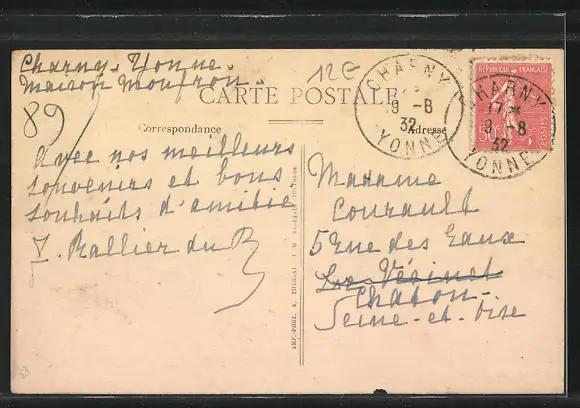 Charny - Yonne -
Maison Moufron -
12E
89
CARTE POSTALE
CHARNY
9 -8
32
YONNE
RÉPUBLIQUE FRANÇAISE
POSTES
CHARNY
17
9 -8
32
YONNE
Correspondance
Adresse
Avec nos meilleurs
souvenirs et bons
souhaits d'amitié
Rallier du
Madame
Courault
5 Rue des Eaux
Le Vésinet
Chatou -
Seine-et-Oise